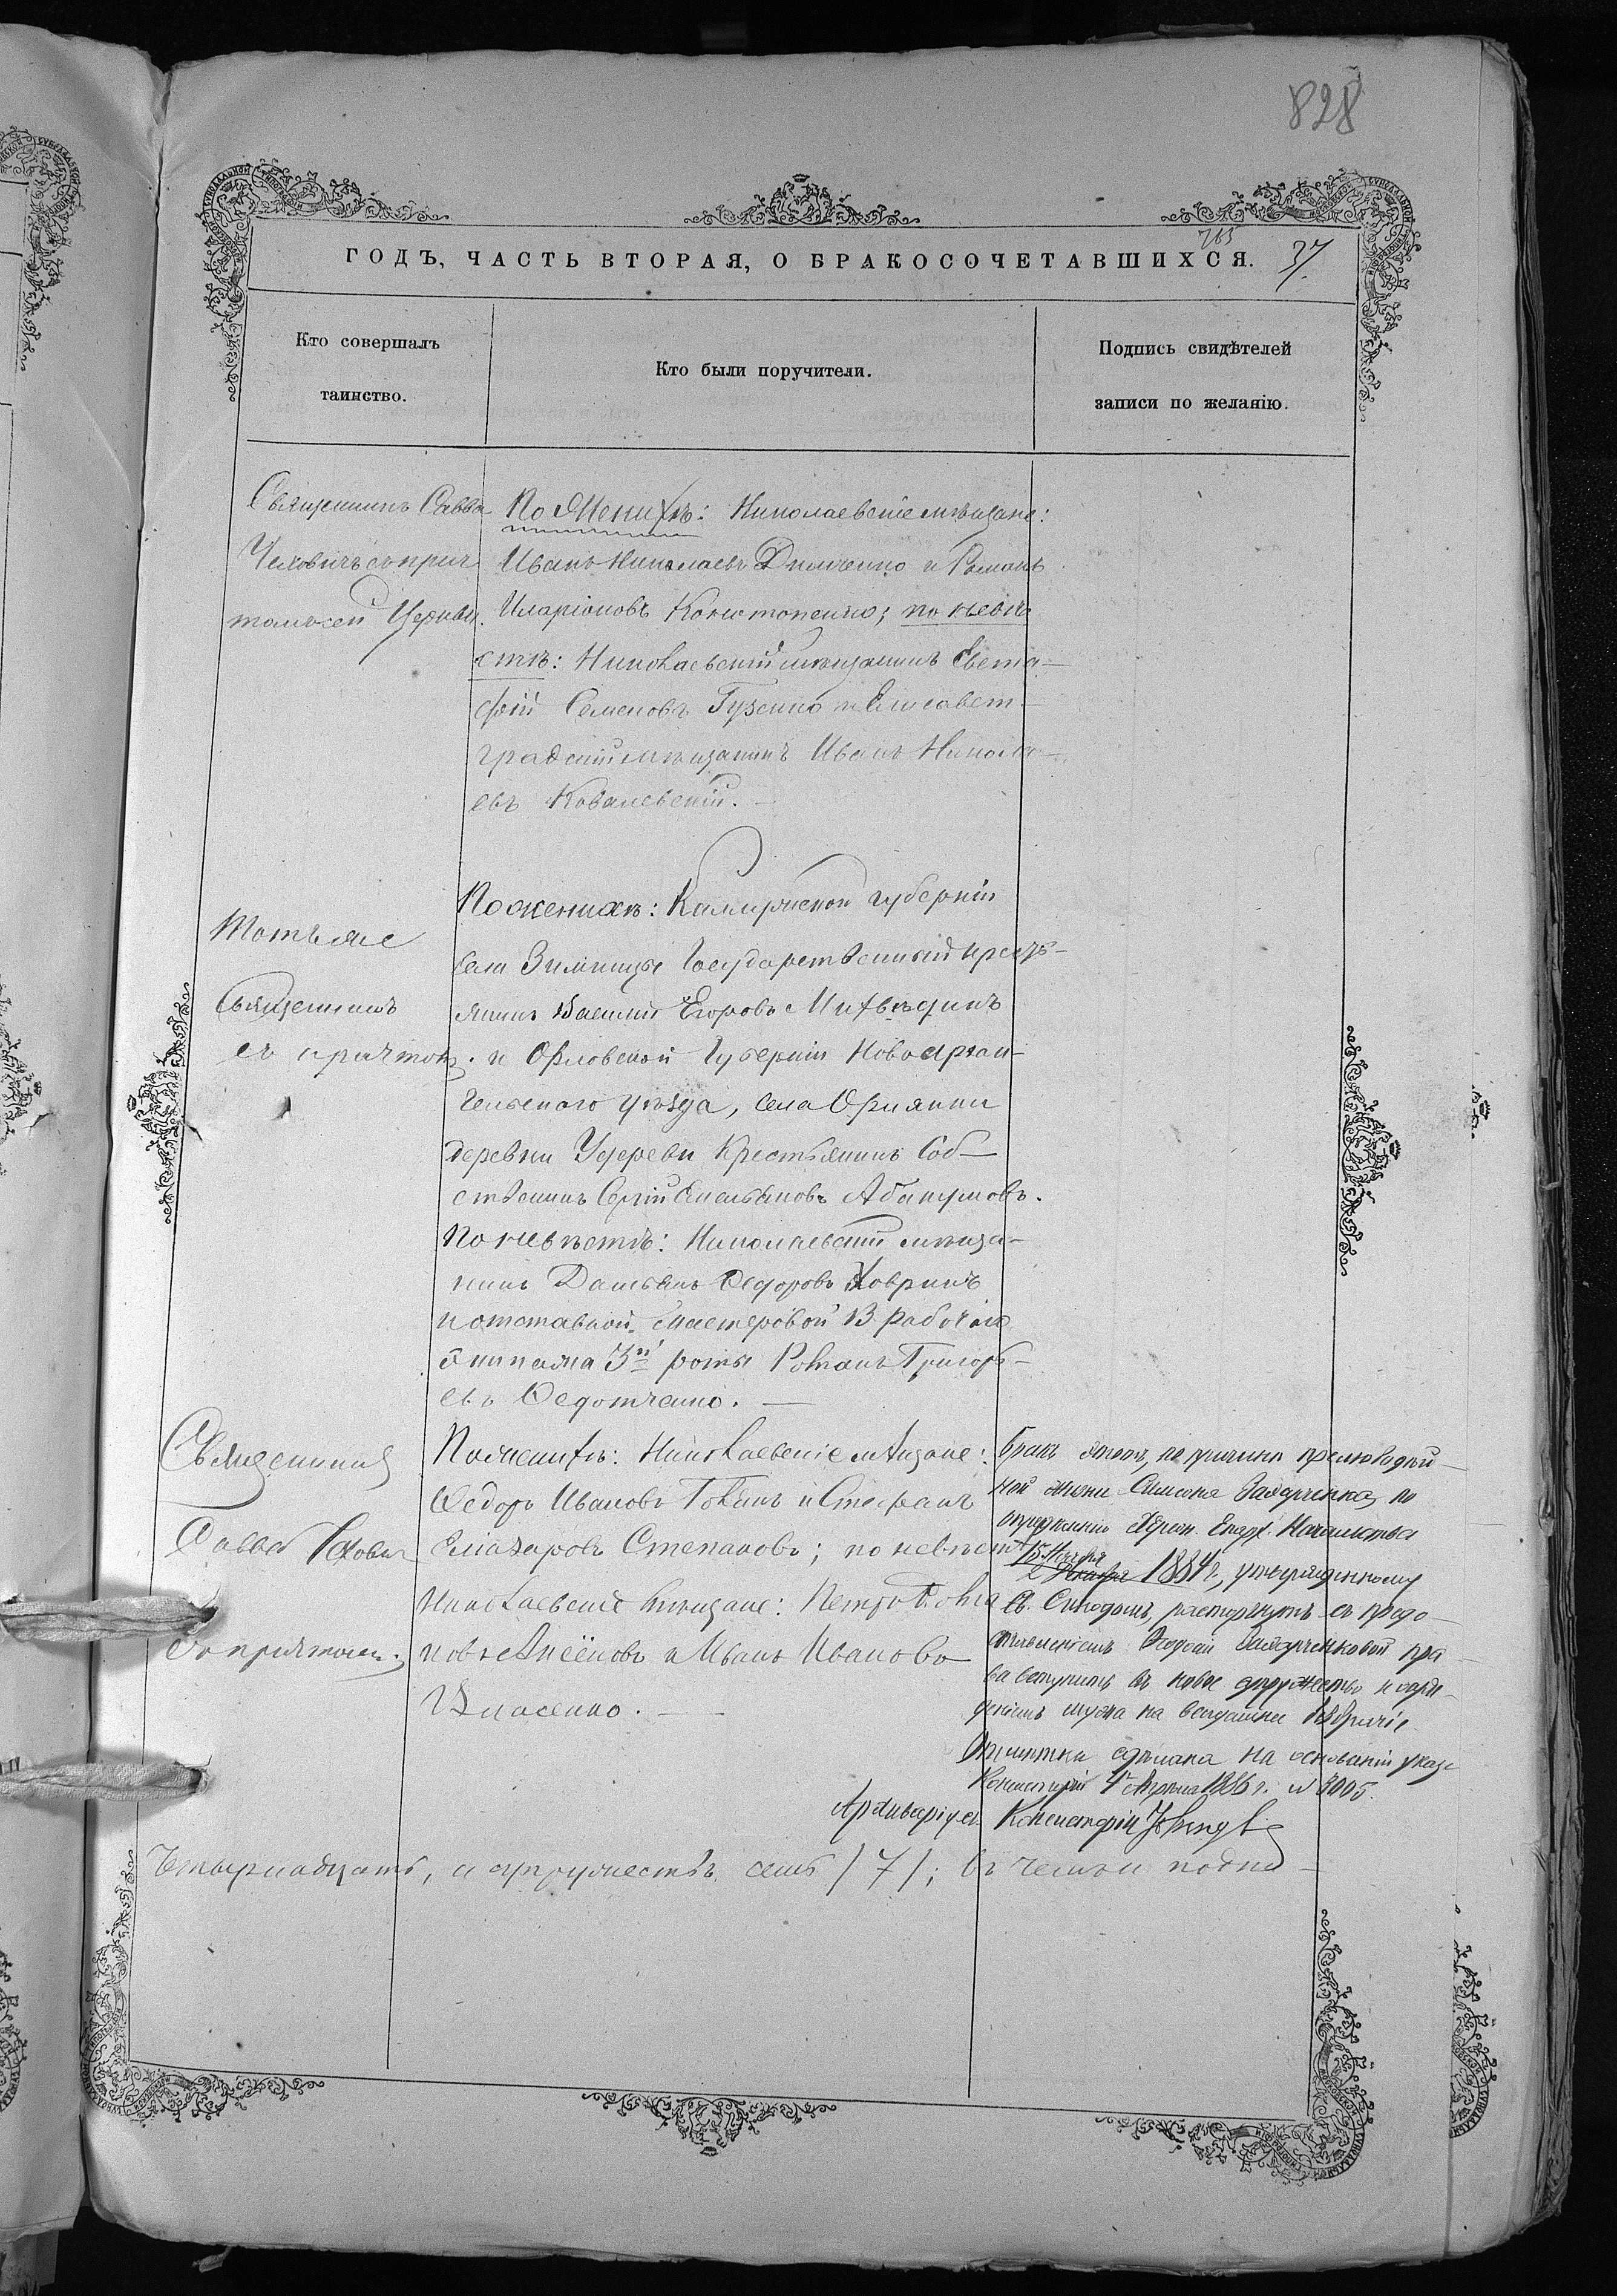 828
ГОДЪ, ЧАСТЬ ВТОРАЯ, О БРАКОСОЧЕТАВШИХСЯ.
765
37.
Кто совершалъ
таинство.
Кто были поручители.
Подпись свидѣтелей
записи по желанію.
Священникъ Савва
Чеховичъ съ прич
томъ сей Церкви.
По Женихѣ: Николаевскіе мѣщане:
Иванъ Николаевъ и Романъ
Иларіоновъ; по невѣ
стѣ: Николаевскій мѣщанинъ Евста-
фій Семеновъ Гузенко и Елисавет-
градскій мѣщанинъ Иванъ Никола-
евъ Ковалевскій.
Тотъ же
Священникъ
съ причтомъ.
По женихѣ: Калужской губерніи
села Зимницы Государственный кресть-
янинъ Василій Егоровъ
и Орловской Губерніи
уѣзда, села
деревни Крестьянинъ Соб-
ственникъ Сергій Емельяновъ Абакумовъ.
По невѣстѣ: Николаевскій мѣща-
нинъ Демьянъ Федоровъ Ховринъ
и отставной мастеровой 13 рабочаго
экипажа 3й роты Романъ Григорь-
евъ Федотченко.
Священникъ
Савва Чеховичъ
съ причтомъ.
По женихѣ: Николаевскіе мѣщане:
Федоръ Ивановъ и Стефанъ
Елиазаровъ Степановъ; по невѣстѣ
Николаевскіе мѣщане: Петръ
и Иванъ Ивановъ
Власенко.
Бракъ этотъ, по причинѣ прелюбодѣй-
ной жизни Симеона Заярченка, по
опредѣленію Херсон. Епарх. Начальства
15 Ноября
2 1884 г., утвержденному
Св. Синодомъ, расторгнутъ съ предо-
ставленіемъ Заярченковой пра-
ва вступить въ новое супружество и осуж-
деніемъ мужа на всегдашнее безбрачіе.
Отмѣтка сдѣлана на основаніи указа
Консисторіи 4 Апрѣля 1886 г. № 3005.
Архиваріусъ Консисторіи
четырнадцать, а супружествъ семь /7/; въ чемъ и подпи-